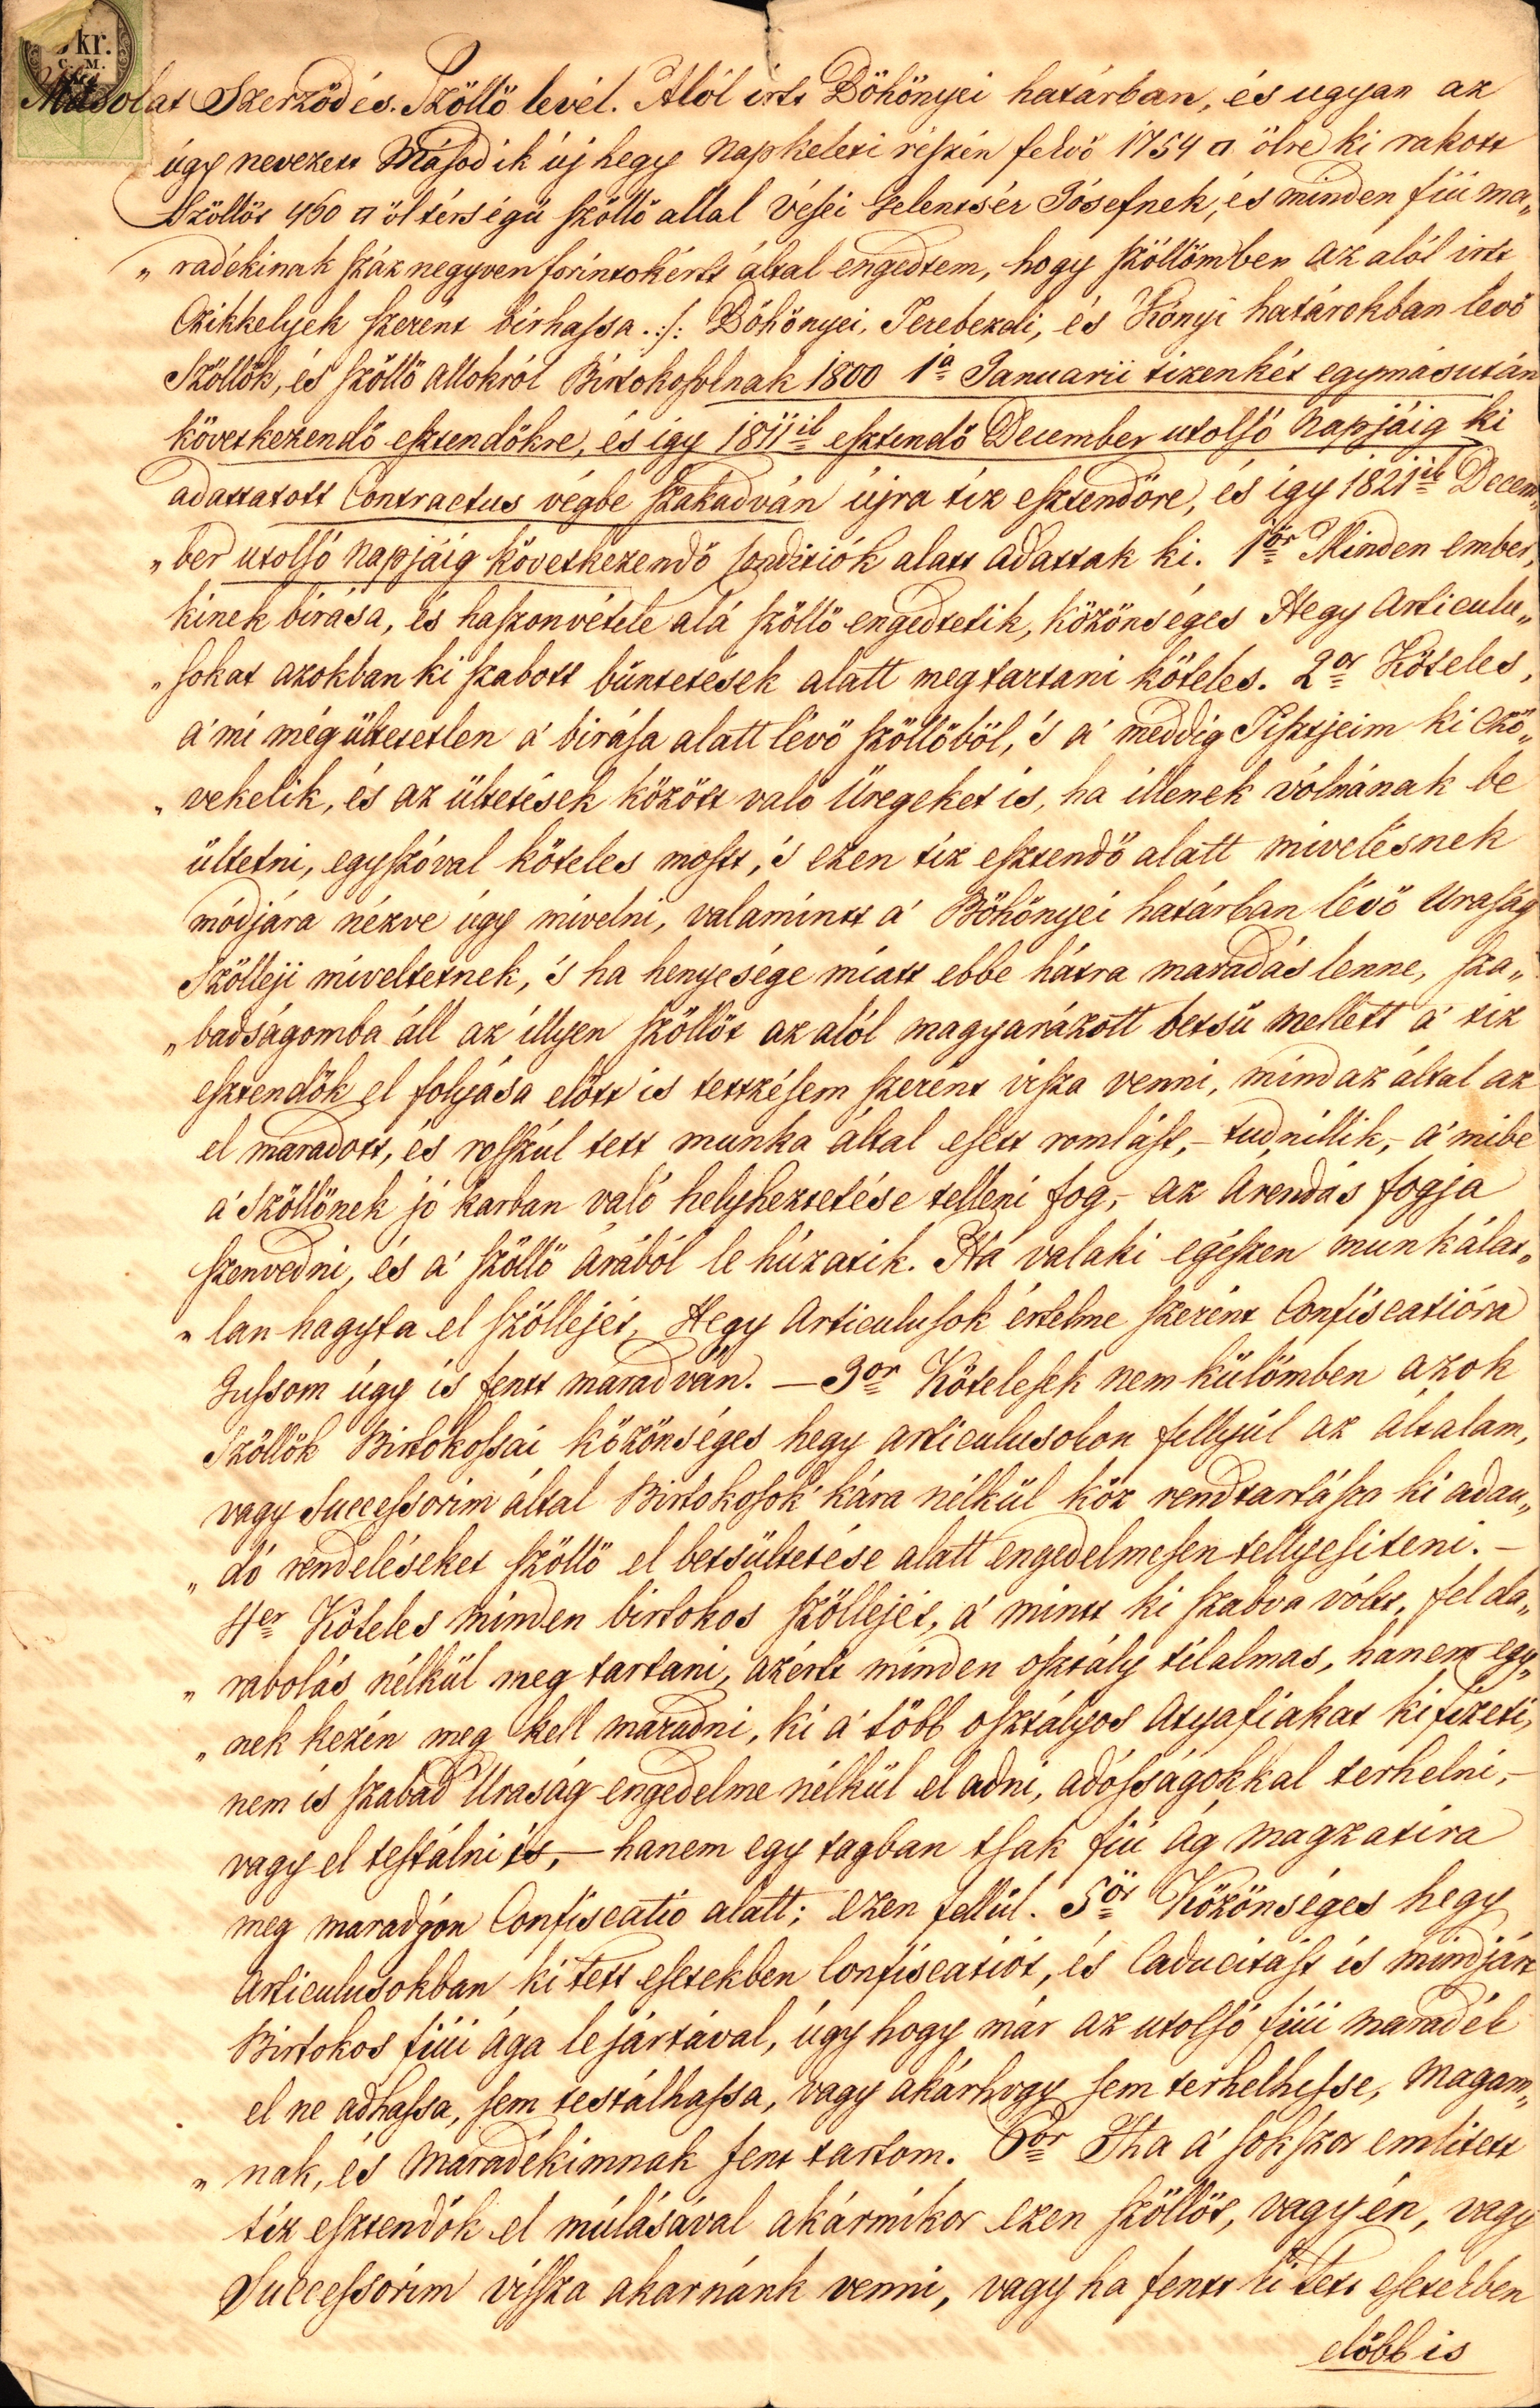 kr.
C. M.
Másolat Szerződés. Szőllő levél. Alól irtt Böhönyei határban, és ugyan az
úgy nevezett Második új hegy Napkeleti részén felvő 1754 □ ölre ki rakott
Szőllőt 460 □ öl térségű szőllő allal Vései Gelentsér Jósefnek, és minden fiú ma„
„ radékinak száz negyven forintokértt által engedtem, hogy szőllőmben az alól irtt
Czikkelyek szerént birhassa. :/: Böhönyei, Terebezdi, és Kónyi határokban levő
Szőllők, és szőllő allokról Birtokosolnak 1800 1a Januarii tizenkét egymásután
következendő esztendőkre, és igy 1811ik esztendő December utolsó Napjáig ki
adattatott Contractus végbe szakadván újra tíz esztendőre, és igy 1821ik Decem„
„ ber utolsó Napjáig következendő Conditiók alatt adattak ki. 1ör Minden ember,
kinek birása, és haszonvétele alá szőllő engedtetik, közönséges Hegy Articulu„
„ sokat azokban ki szabott büntetések alatt megtartani köteles. 2or Köteles,
a' mi még ültetetlen a' birása alatt lévő szőllőből, 's a' meddig Tisztjeim ki czö„
„ vekelik, és az ültetések között való Üregeket is, ha illenek vólnának be
ültetni, egyszóval köteles mostt, 's ezen tíz esztendő alatt mivelésnek
módjára nézve úgy mivelni, valamintt a' Böhönyei határban lévő Uraság
Szölleji miveltetnek, 's ha henyesége miatt ebbe hátra maradás lenne, sza„
„ badságomba áll az illyen szőllőt az alól magyarázott betsű mellett a' tíz
esztendők el folyása előtt is tettzésem szerént visza venni, mind az által az
el maradott, és rosszúl tett munka által esett romlást, – tudnillik, – a' mibe
a' Szőllőnek jó karban való helyheztetése telleni fog, – az Arendás fogja
szenvedni, és a' szőllő árából le húzatik. Ha valaki egészen munkálat„
„ lan hagyta el szőllejét, Hegy Articulusok értelme szerént Confiscatióra
Jussom úgy is fentt maradván. — 3or Kötelesek nem külömben azok
Szőllők Birtokossai közönséges hegy articulusokon fellyül az általam,
vagy Successorim által Birtokosok' kára nélkül köz rendtartásra ki adan„
„ dó rendeléseket szőllő el betsültetése alatt engedelmesen tellyesiteni. –
4er Köteles minden birtokos szöllejét, a' mintt ki szabva vólt, fel da„
„ rabolás nélkül meg tartani, azértt minden osztály tilalmas, hanem egy„
„ nek kezén meg kell maradni, ki a' több osztályos Atyafiakat ki fizeti,
nem is szabad Uraság engedelme nélkül el adni, adósságokkal terhelni, –
vagy el testálni is, – hanem egy tagban tsak fiú ág magzatira
meg maradgyon Confiscatió alatt; ezen fellül. 5ör Közönséges hegy
Articulusokban ki tett esetekben Confiscatiót, és Caducitást is mindjárt
Birtokos fiúi ága lejártával, úgy hogy már az utolsó fiúi maradék
el ne adhassa, sem testálhassa, vagy akárhogy sem terhelhesse, Magam„
„ nak, és Maradékimnak fent tartom. 6or Ha a' sokszor emlitett
tíz esztendők el múlásával akármikor ezen szőllőt, vagy én, vagy
Successorim vissza akarnánk venni, vagy ha fentt ki tett esetekben
előbb is